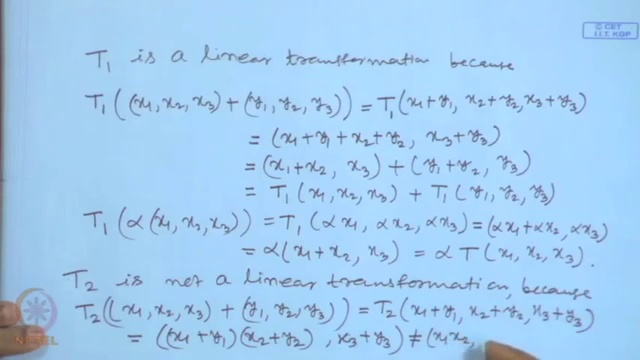 © CET
I.I.T. KGP
T₁ is a linear transformation because
T₁((x₁, x₂, x₃) + (y₁, y₂, y₃)) = T₁(x₁+y₁, x₂+y₂, x₃+y₃)
= (x₁+y₁+x₂+y₂, x₃+y₃)
= (x₁+x₂, x₃) + (y₁+y₂, y₃)
= T₁(x₁, x₂, x₃) + T₁(y₁, y₂, y₃)
T₁(α(x₁, x₂, x₃)) = T₁(αx₁, αx₂, αx₃) = (αx₁+αx₂, αx₃)
= α(x₁+x₂, x₃) = αT(x₁, x₂, x₃).
T₂ is not a linear transformation, because
T₂((x₁, x₂, x₃) + (y₁, y₂, y₃)) = T₂(x₁+y₁, x₂+y₂, x₃+y₃)
= ((x₁+y₁)(x₂+y₂), x₃+y₃) ≠ (x₁x₂,
NPTEL